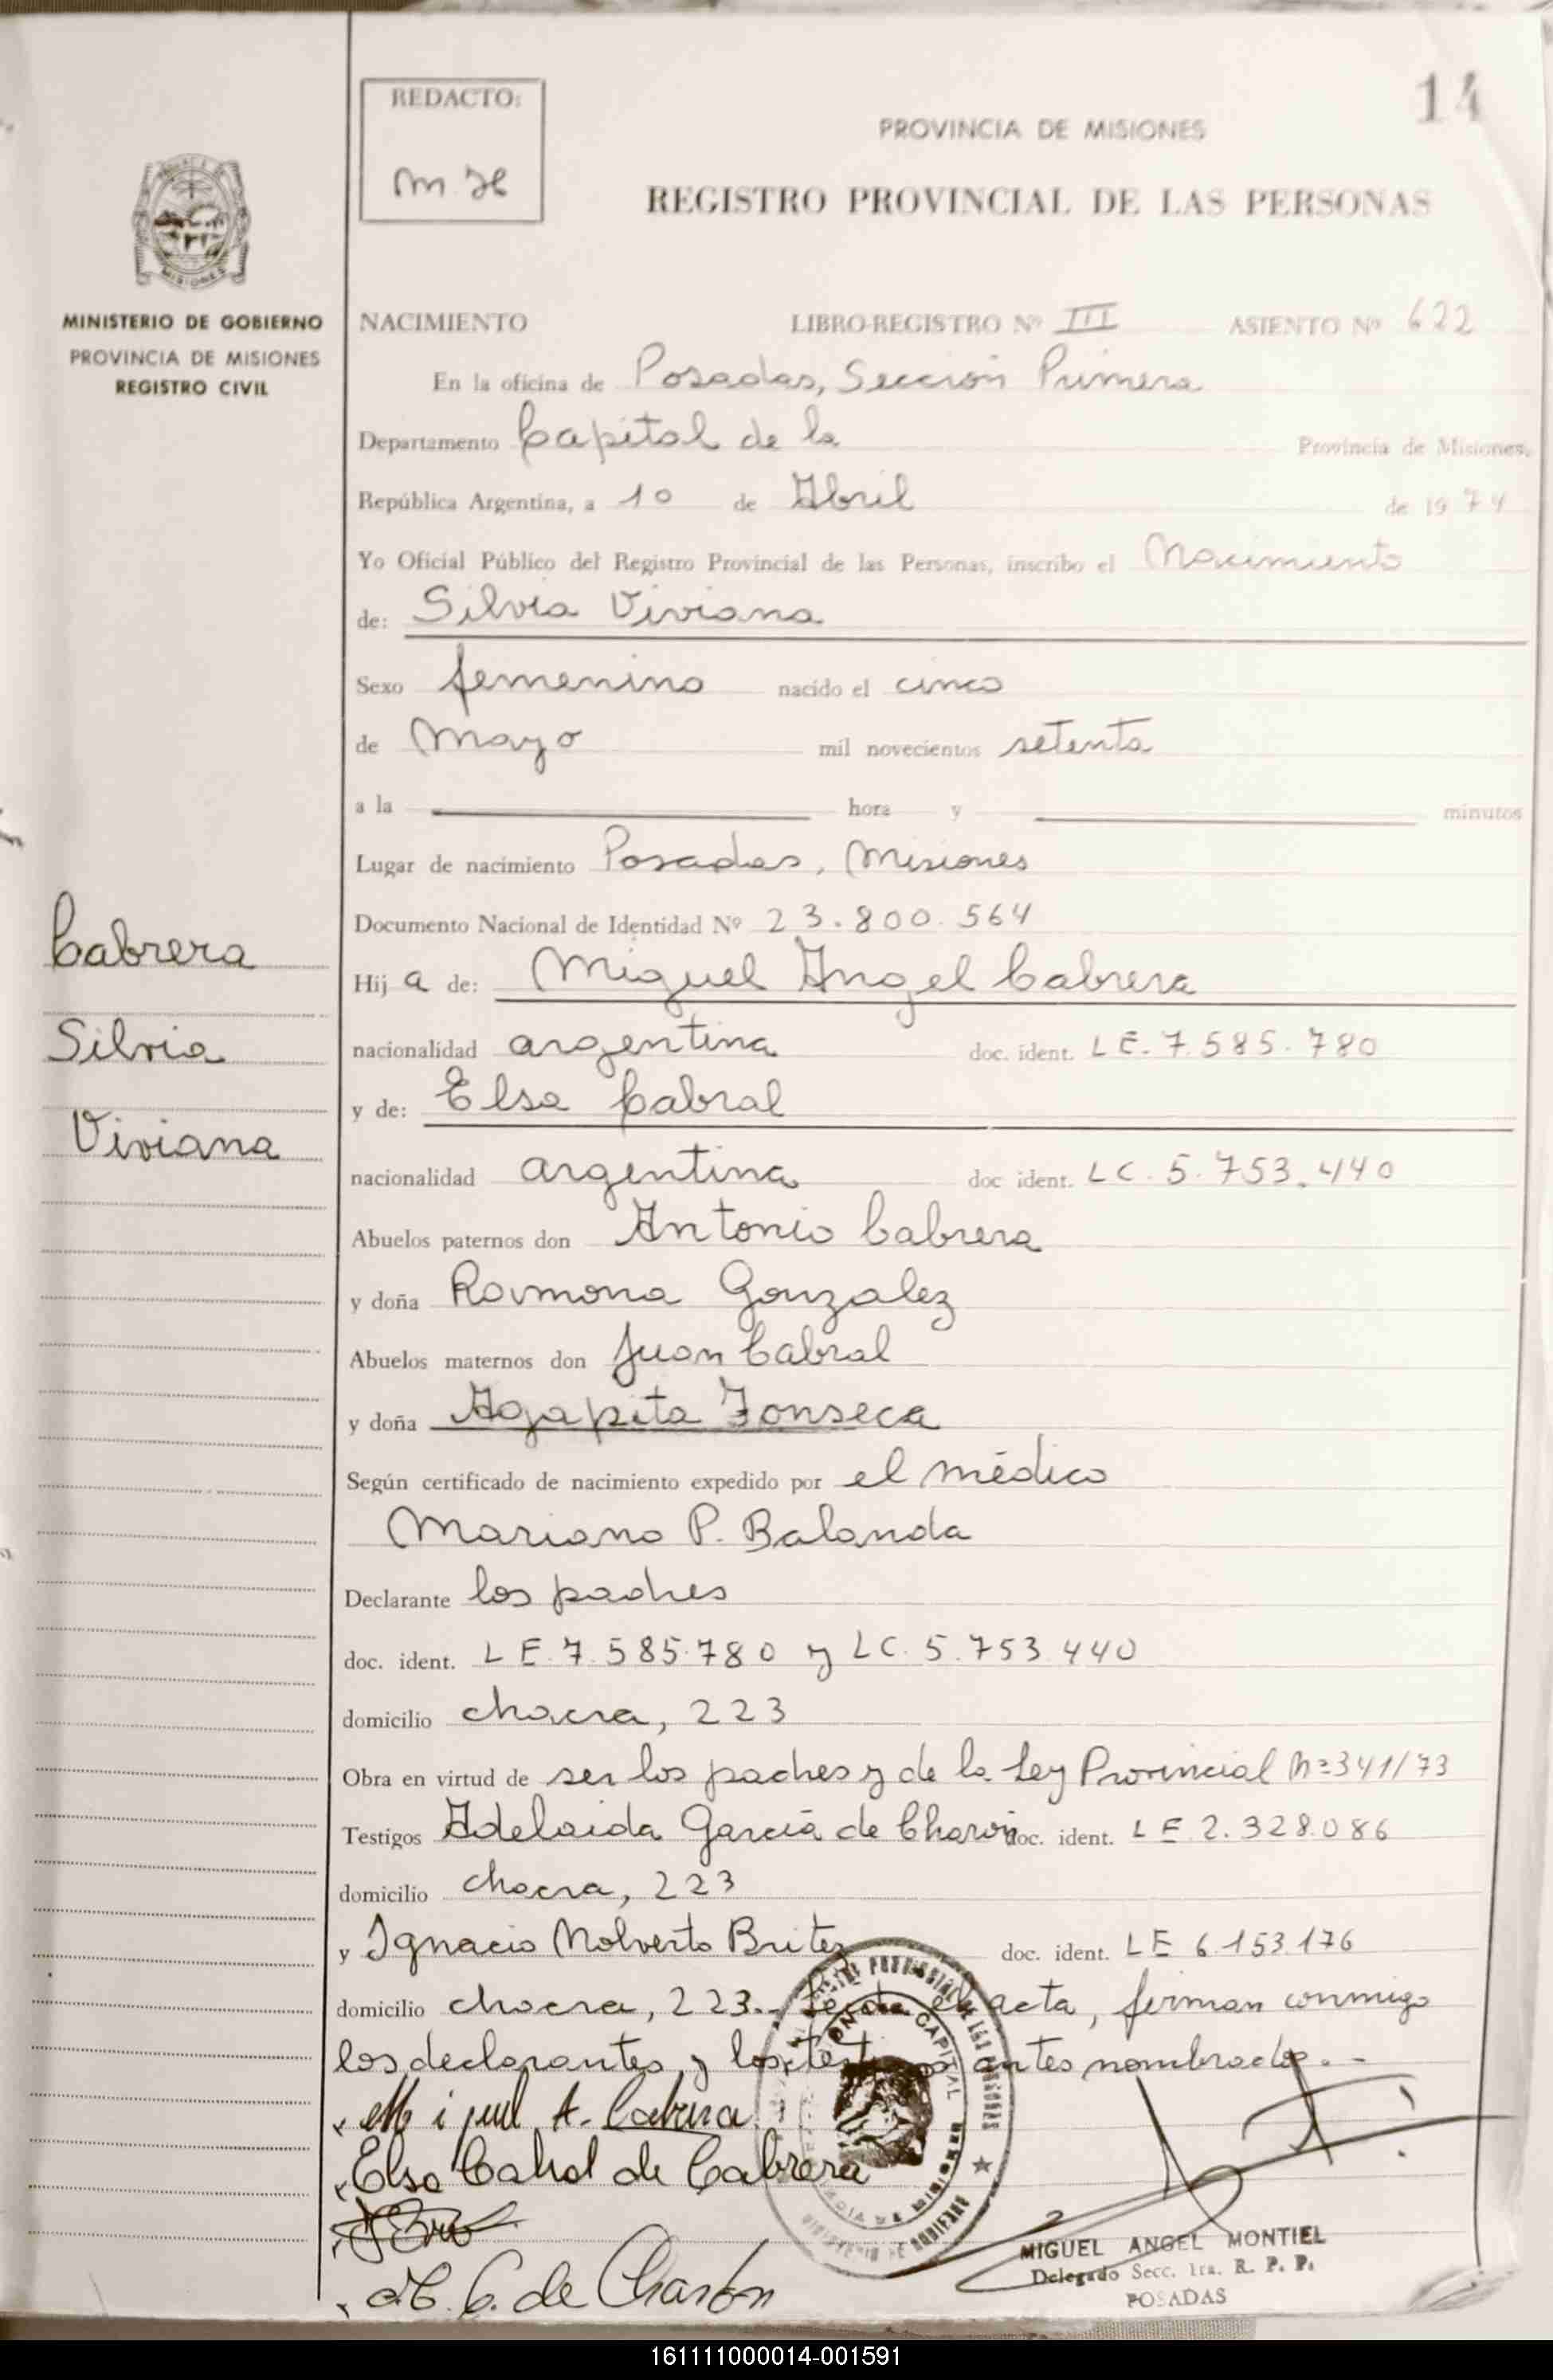 14
REDACTO:
PROVINCIA DE MISIONES
REGISTRO PROVINCIAL DE LAS PERSONAS
MISIONES
MINISTERIO DE GOBIERNO
PROVINCIA DE MISIONES
REGISTRO CIVIL
NACIMIENTO LIBRO-REGISTRO Nº III ASIENTO Nº 622
En la oficina de Posadas, Sección Primera
Departamento Capital de la Provincia de Misiones,
República Argentina, a 10 de Abril de 1974
Yo Oficial Público del Registro Provincial de las Personas, inscribo el Nacimiento
de: Silvia Viviana
Sexo femenino nacido el cinco
de Mayo mil novecientos setenta
a la hora y minutos
Lugar de nacimiento Posadas, Misiones
Documento Nacional de Identidad Nº 23.800.564
Cabrera
Silvia
Viviana
Hij a de: Miguel Angel Cabrera
nacionalidad argentina doc. ident. LE. 7.585.780
y de: Elsa Cabral
nacionalidad argentina doc ident. LC. 5.753.440
Abuelos paternos don Antonio Cabrera
y doña Ramona Gonzalez
Abuelos maternos don Juan Cabral
y doña Agapita Fonseca
Según certificado de nacimiento expedido por el médico
Mariano P. Balanda
Declarante los padres
doc. ident. LE. 7.585.780 y LC. 5.753.440
domicilio chacra, 223
Obra en virtud de ser los padres y de la Ley Provincial Nº 341/73
Testigos Adelaida García de Charón doc. ident. LE. 2.328.086
domicilio chacra, 223
y Ignacio Nolverto Britez doc. ident. LE 6.153.176
domicilio chacra, 223.- Leída el acta, firman conmigo
los declarantes y los testigos antes nombrados.-
Miguel A. Cabrera
Elsa Cabral de Cabrera
G. de Charón
MIGUEL ANGEL MONTIEL
Delegado Secc. 1ra. R. P. P.
POSADAS
161111000014-001591